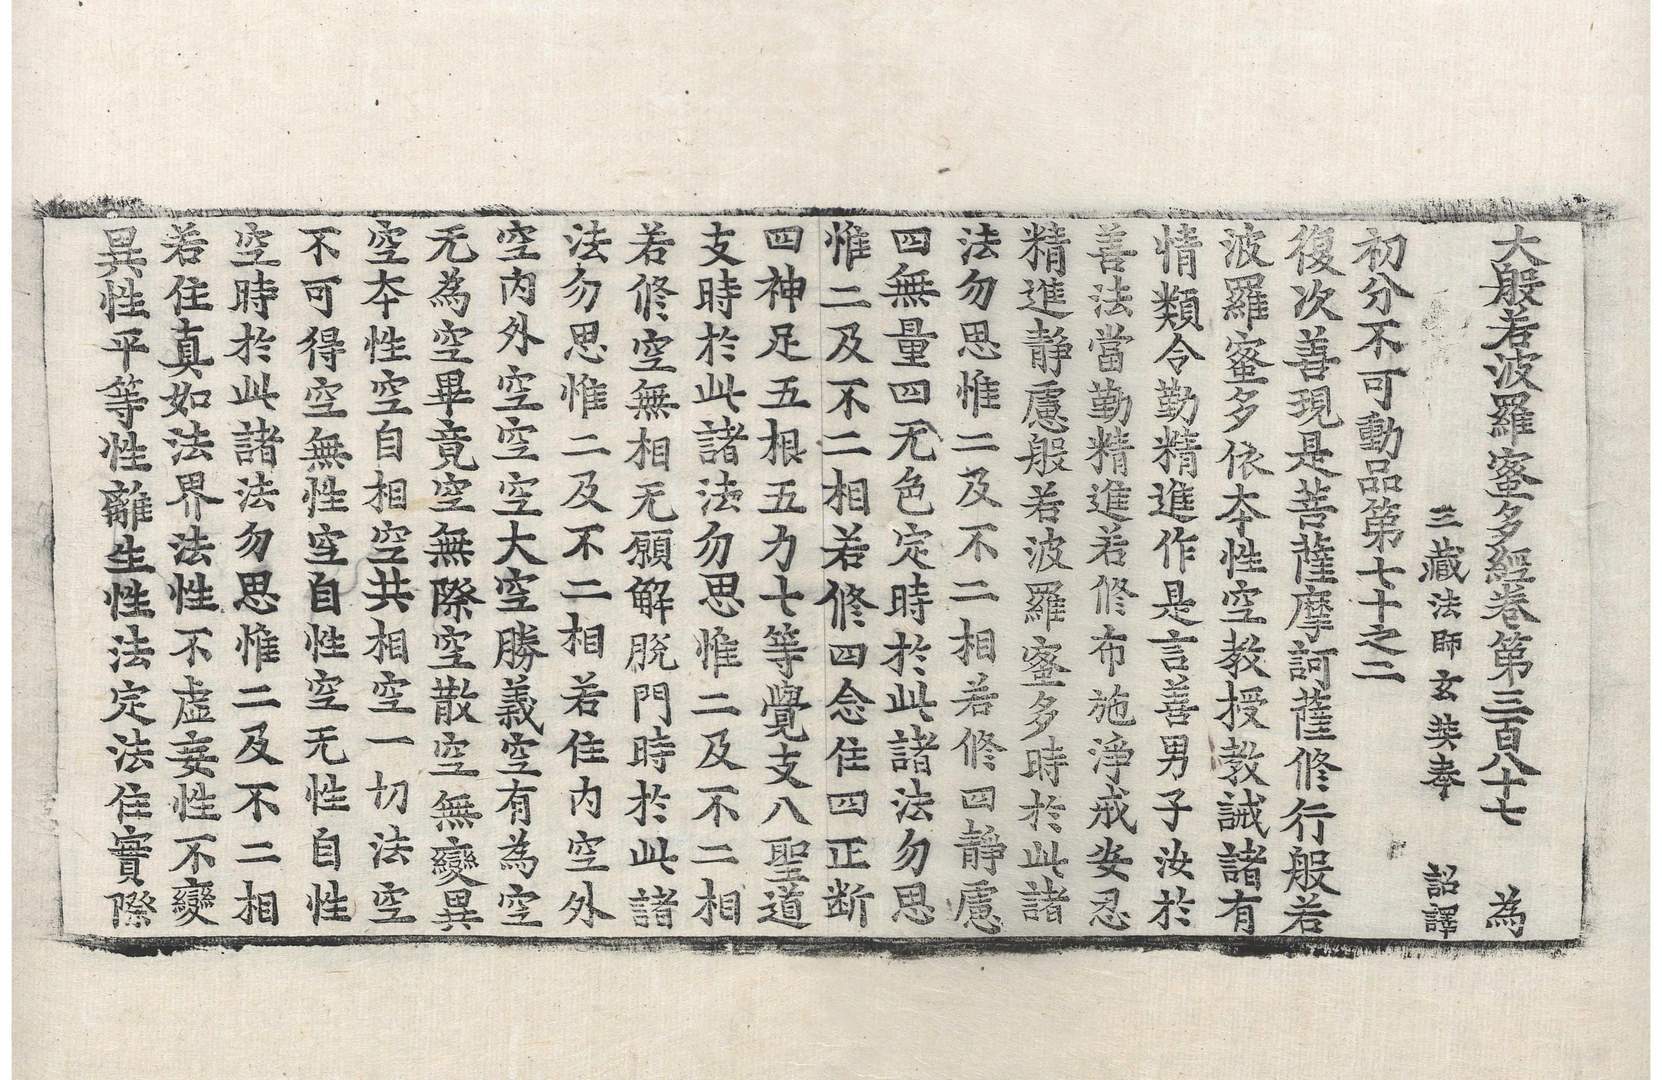 大般若波羅蜜多經卷第三百八十七　為
三藏法師玄奘奉　詔譯
初分不可動品第七十之二
復次善現是菩薩摩訶薩修行般若
波羅蜜多依本性空教授教誡諸有
情類令勤精進作是言善男子汝於
善法當勤精進若修布施淨戒安忍
精進靜慮般若波羅蜜多時於此諸
法勿思惟二及不二相若修四靜慮
四無量四无色定時於此諸法勿思
惟二及不二相若修四念住四正斷
四神足五根五力七等覺支八聖道
支時於此諸法勿思惟二及不二相
若修空無相无願解脫門時於此諸
法勿思惟二及不二相若住內空外
空內外空空空大空勝義空有為空
无為空畢竟空無際空散空無變異
空本性空自相空共相空一切法空
不可得空無性空自性空无性自性
空時於此諸法勿思惟二及不二相
若住真如法界法性不虛妄性不變
異性平等性離生性法定法住實際